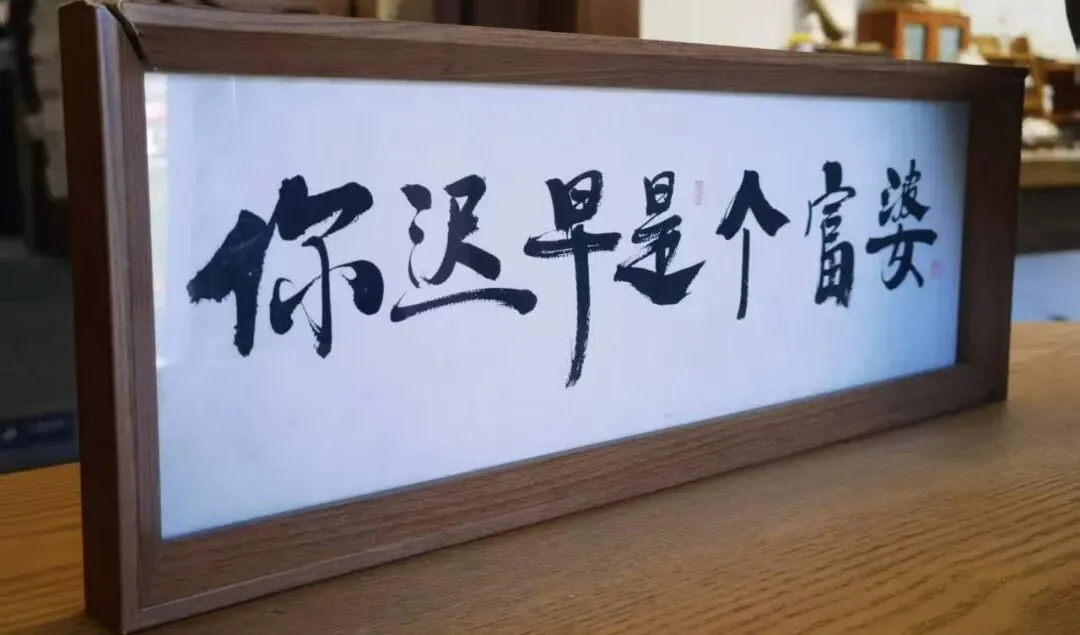 你迟早是个富婆